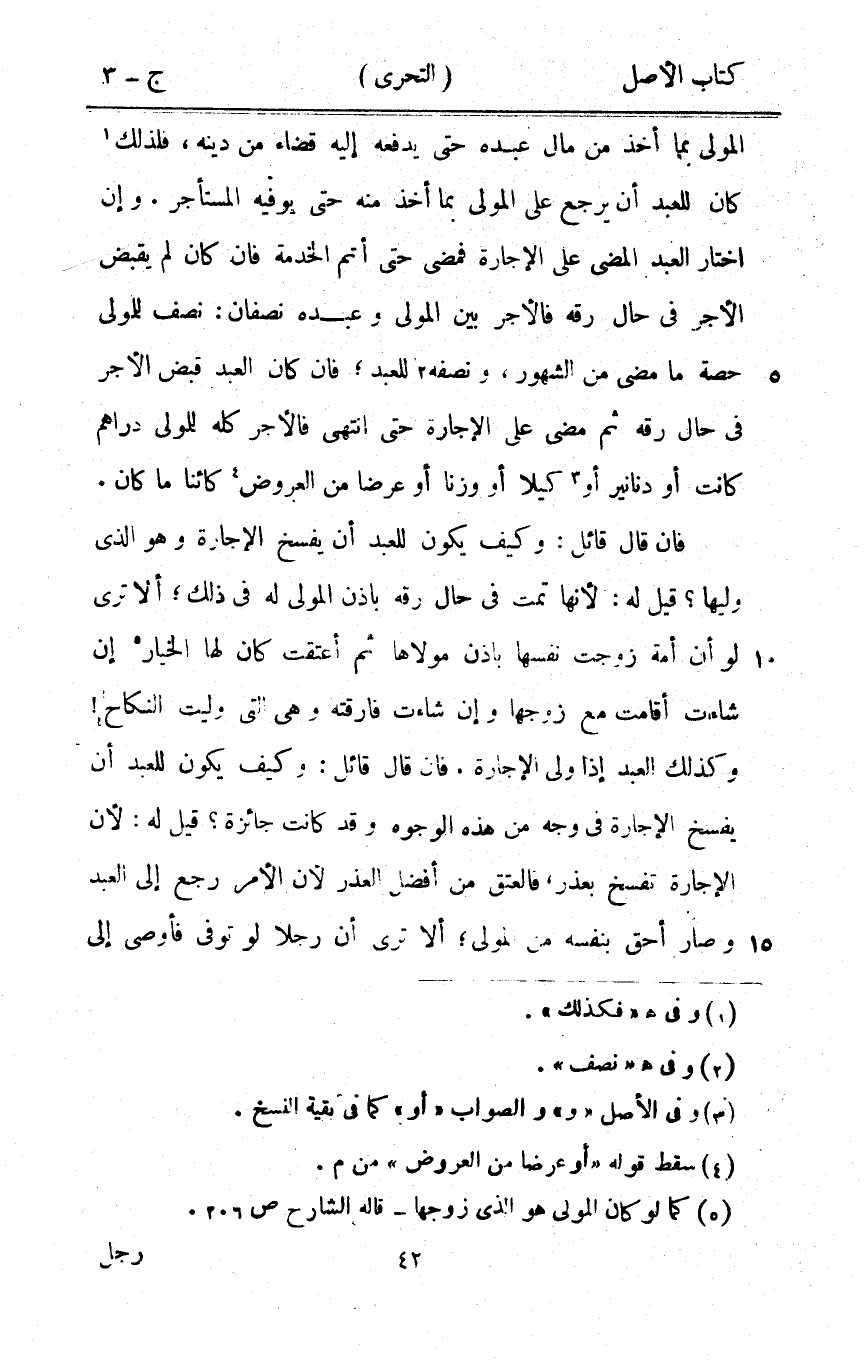 كتاب الأصل ( التحرى ) ج - ٣
المولى بما أخذ من مال عبده حتى يدفعه إليه قضاء من دينه ، فلذلك١
كان للعبد أن يرجع على المولى بما أخذ منه حتى يوفيه المستأجر . و إن
اختار العبد المضى على الإجارة فمضى حتى أتم الخدمة فان كان لم يقبض
الأجر فى حال رقه فالأجر بين المولى و عبده نصفان : نصف للمولى
٥ حصة ما مضى من الشهور ، و نصفه٢ للعبد ؛ فان كان العبد قبض الأجر
فى حال رقه ثم مضى على الإجارة حتى انتهى فالأجر كله للمولى دراهم
كانت أو دنانير أو٣ كيلا أو وزنا أو عرضا من العروض٤ كائنا ما كان .
فان قال قائل : و كيف يكون للعبد أن يفسخ الإجارة و هو الذى
وليها ؟ قيل له : لأنها تمت فى حال رقه باذن المولى له فى ذلك ؛ ألا ترى
١٠ لو أن أمة زوجت نفسها باذن مولاها ثم أعتقت كان لها الخيار٥ إن
شاءت أقامت مع زوجها و إن شاءت فارقته و هى التى وليت النكاح !
و كذلك العبد إذا ولى الإجارة . فان قال قائل : و كيف يكون للعبد أن
يفسخ الإجارة فى وجه من هذه الوجوه و قد كانت جائزة ؟ قيل له : لأن
الإجارة تفسخ بعذر ، فالعتق من أفضل العذر لأن الأمر رجع إلى العبد
١٥ و صار أحق بنفسه من المولى ؛ ألا ترى أن رجلا لو توفى فأوصى إلى
(١) و فى ه « فكذلك » .
(٢) و فى ه « نصف » .
(٣) و فى الأصل « و » و الصواب « أو » كما فى بقية النسخ .
(٤) سقط قوله « أو عرضا من العروض » من م .
(٥) كما لو كان المولى هو الذى زوجها - قاله الشارح ص ٢٠٦ .
٤٢ رجل